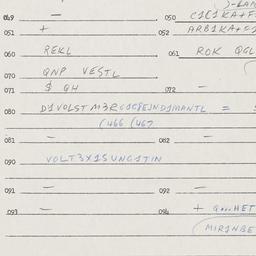 049 —
050 C1C1KA+F
051 +
052 ARB1KA+C
060 REKL
061 ROK QGL
070 QNP VESTL
071 $ QH
072 —
080 D1VOLST M3R =
(466 (467
081 —
082 —
090 VOLT3X1SUNG1TIN
091 —
092 —
093 —
094 + HET
MIR1NBE